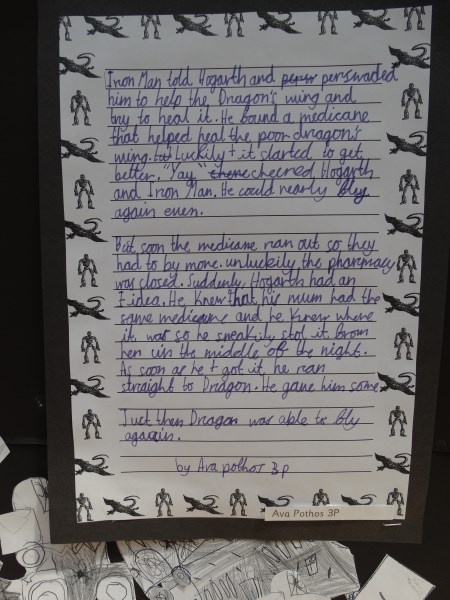 Iron Man told Hogarth and persuaded
him to help the Dragon's wing and
try to heal it. He found a medicane
that helped heal the poor dragon's
wing. Luckily it started to get
better. "Yay," cheered Hogarth
and Iron Man. He could nearly fly
again even.
But soon the medicane ran out so they
had to by more. unluckily the pharmacy
was closed. Suddenly, Hogarth had an
Idea. He knew that his mum had the
same medicane and he knew where
it was so he sneakily stol it from
her in the middle of the night.
As soon as he got it, he ran
straight to Dragon. He gave him some
Just then Dragon was able to fly
again.
by Ava pothos 3p
Ava Pothos 3P